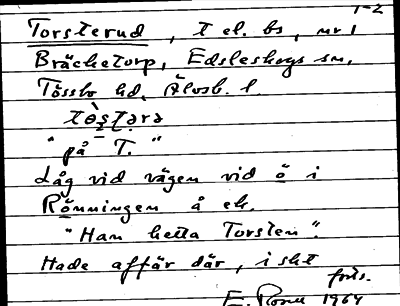 1-2
Torsterud, t el. bs, nr 1
Bräcketorp, Edsleskogs sn,
Tössbo hd, Älvsb. l.
tòs̱ṯərə
"på T."
Låg vid vägen vid ö i
Rönningen å ek.
"Han hetta Torsten".
Hade affär där, i sht
forts.
E. 1964